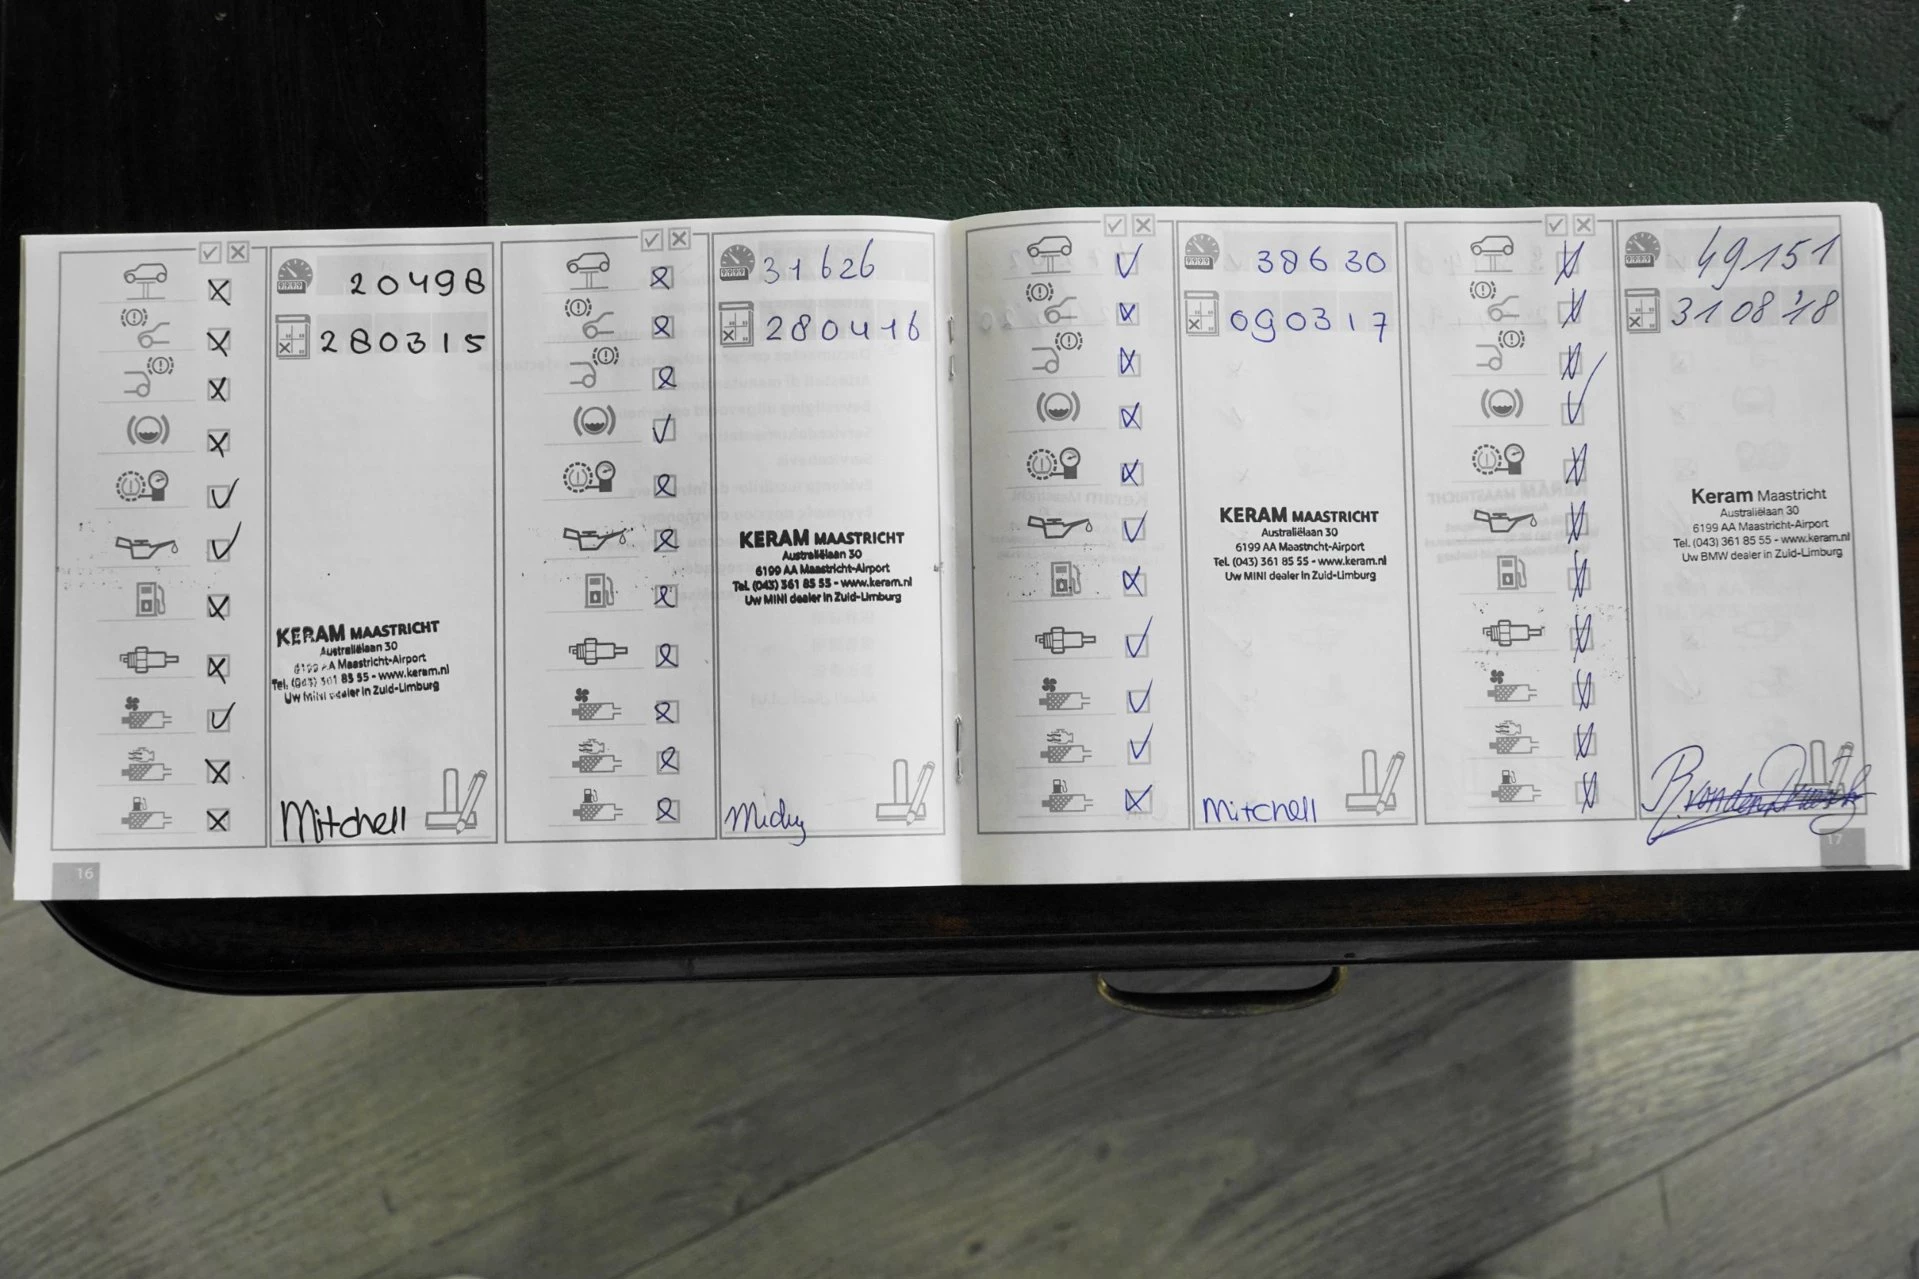 20498
280315
KERAM MAASTRICHT
Australiëlaan 30
6199 AA Maastricht-Airport
Tel. (043) 361 85 55 - www.keram.nl
Uw MINI dealer in Zuid-Limburg
Mitchell
16
31626
280416
KERAM MAASTRICHT
Australiëlaan 30
6199 AA Maastricht-Airport
Tel. (043) 361 85 55 - www.keram.nl
Uw MINI dealer in Zuid-Limburg
38630
090317
KERAM MAASTRICHT
Australiëlaan 30
6199 AA Maastricht-Airport
Tel. (043) 361 85 55 - www.keram.nl
Uw MINI dealer in Zuid-Limburg
Mitchell
49151
31 08 '18
Keram Maastricht
Australiëlaan 30
6199 AA Maastricht-Airport
Tel. (043) 361 85 55 - www.keram.nl
Uw BMW dealer in Zuid-Limburg
17